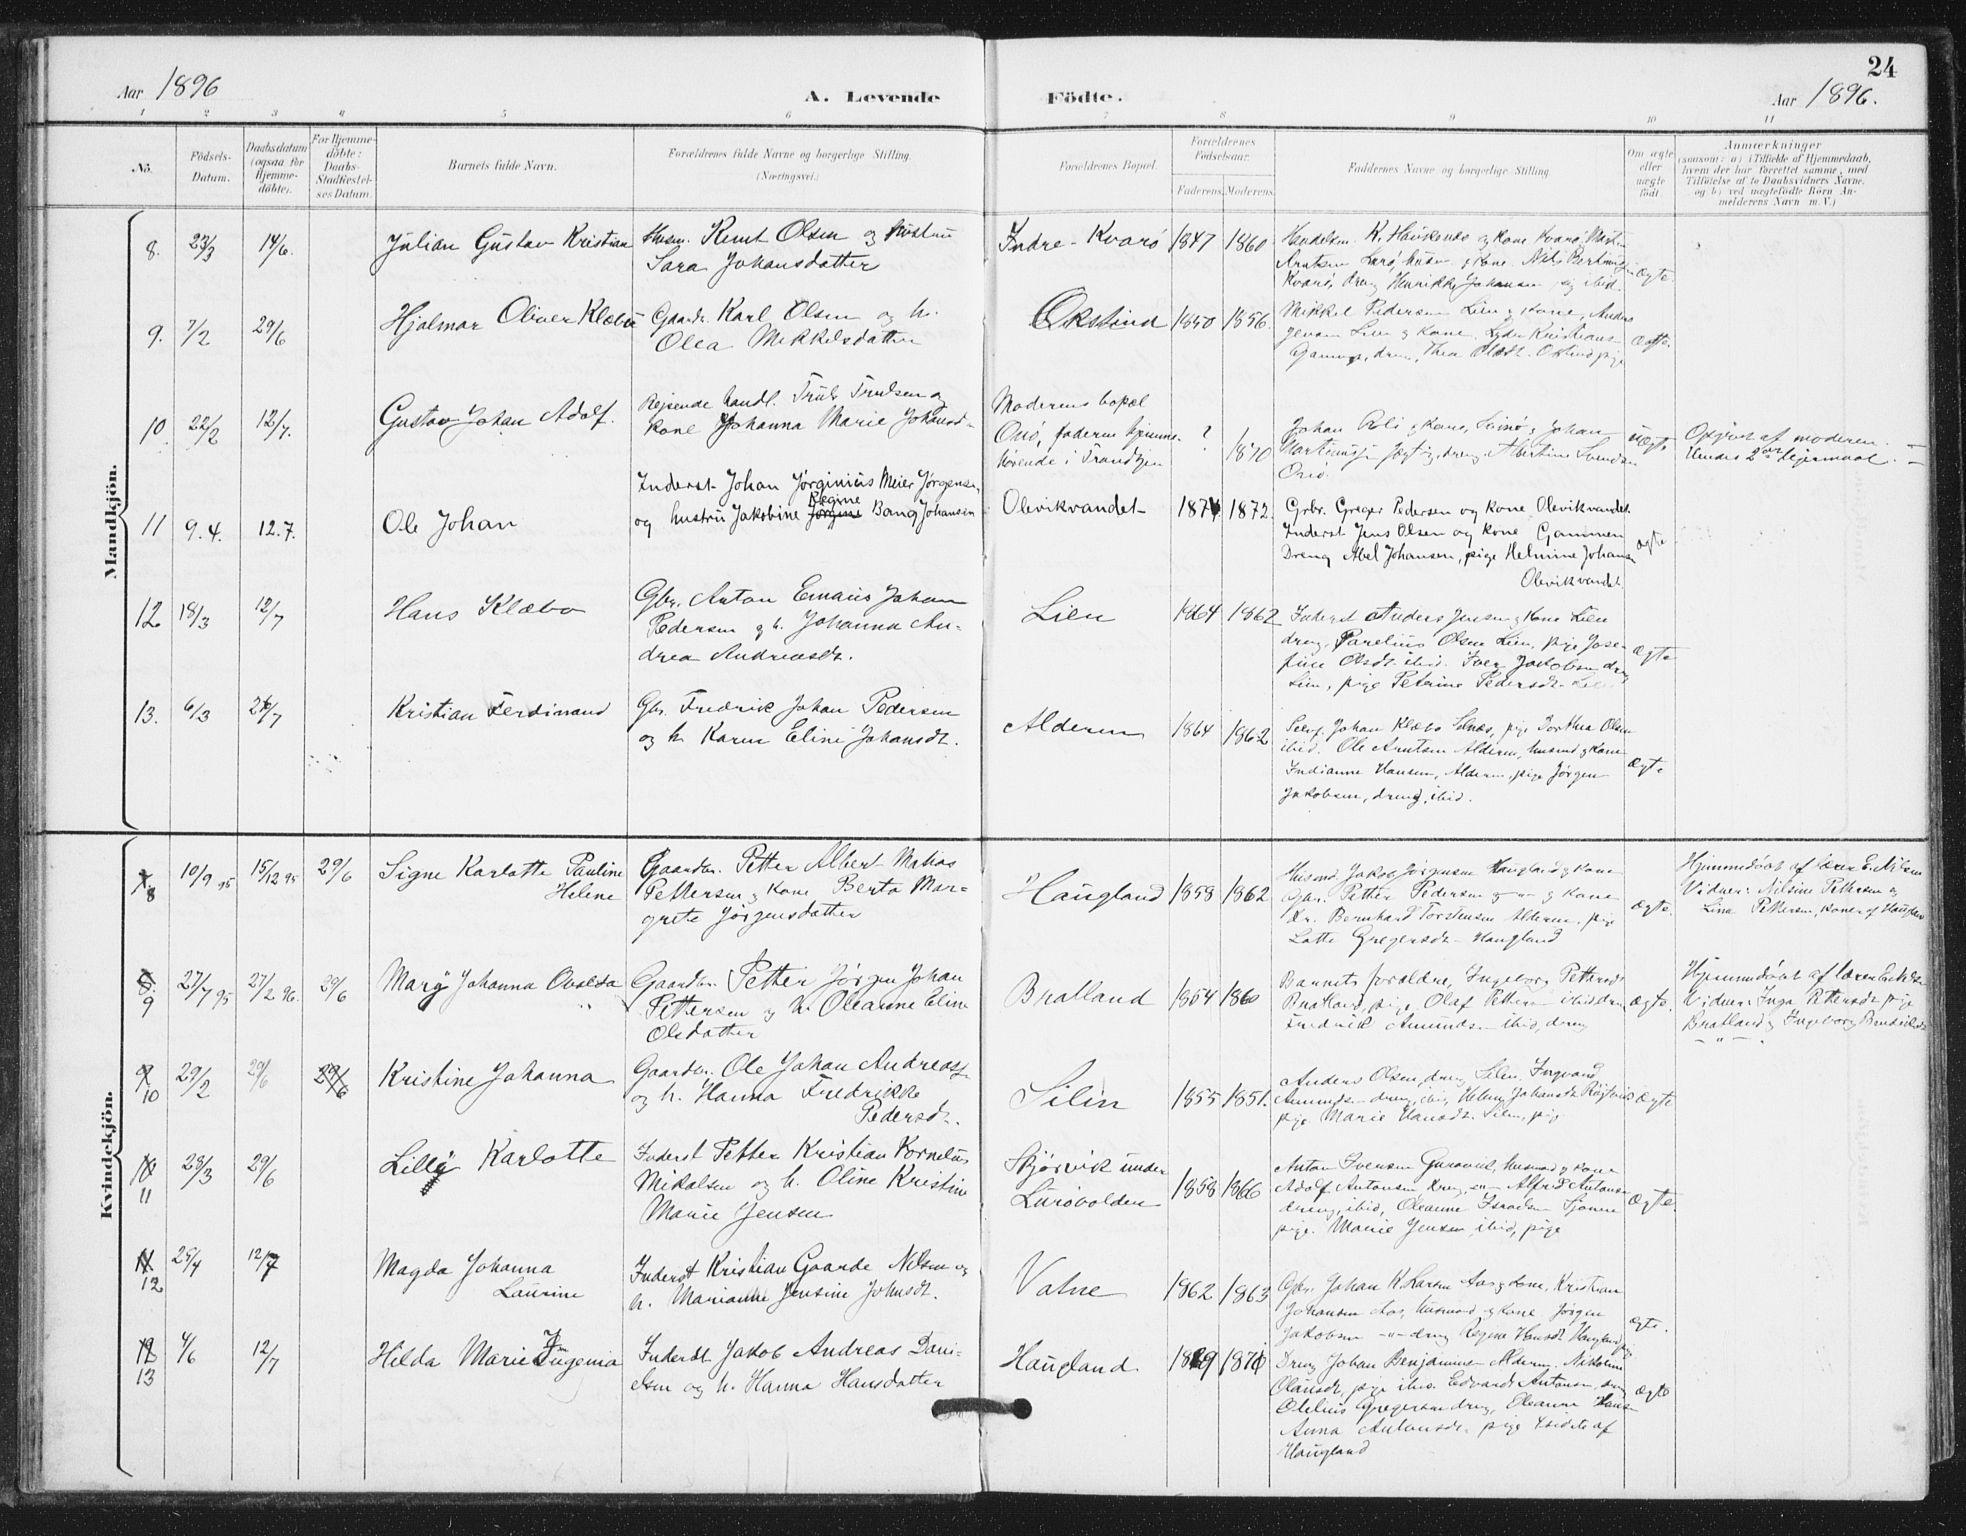 24
Aar 1896
A. Levende
Födte.
Aar 1896.
1 2 3 4 5 6 7 8 9 10 11
No.
Födsels-
Datum.
Daabsdatum
(ogsaa for
Hjemme-
döbte).
For Hjemme-
döbte:
Daabs-
Stadfestel-
ses Datum.
Barnets fulde Navn.
Forældrenes fulde Navne og borgerlige Stilling.
(Næringsvei.)
Forældrenes Bopæl.
Forældrenes
Födselsaar.
Faderens. Moderens.
Faddernes Navne og borgerlige Stilling.
Om ægte
eller
uægte
födt.
Anmærkninger
(saasom: a) i Tilfælde af Hjemmedaab,
hvem der har forrettet samme, med
Tilföielse af to Daabsvidners Navne,
og b) ved uægtefödte Börn An-
melderens Navn m. V.)
Mandkjön.
8. 23/3 14/6. Julian Gustav Kristian
Husm. Kent Olsen og hustru
Sara Johansdatter
Indre-Kvarø 1847 1860.
K. Haukenes og kone Kvarø
Kvarø, dreng Henrikke Johansen
ægte.
9. 7/2 29/6 Hjalmar Oliver Klæbu
Gaardr. Karl Olsen og h.
Olea Mikkelsdatter
Økstind 1850 1856.
Mikkel Pedersen Lien og kone, Anders
Jensen Lien og kone
ægte.
10. 22/2 12/7. Gustav Johan Adolf.
Rejsende handl. Truls Trulsen og
kone Johanna Marie Johansd
Moderens bopæl
Onø, faderen hjemme-
hørende i Trondhjem
? 1870
Johan
Onø.
uægte
Opgivet af moderen.
Hendes 2det lejermaal.
11 9.4. 12.7. Ole Johan
Inderst Johan Jørginius Meier Jørgensen
Regine
og hustru Jakobine Jørgine Bang Johansen
Olevikvandet 1874 1872.
Grbr. Greger Pedersen og kone Olevikvandet
Inderst Jens Olsen og kone Gammen
Dreng Abel Johansen, pige Helmine Johansen
Olevikvandet
ægte
12. 18/3 12/7 Hans Klæbo
Gbr. Anton Emaus Johan
Pedersen og h. Johanna An-
drea Andreasdt.
Lien 1864 1862
Inderst Anders Jensen og kone Lien
dreng Parelius Olsen Lien, pige Jose-
fine Olsdt. ibid. Iver Jakobsen dreng
Lien, pige Peterine Pedersdt. Lien
ægte
13. 6/3 26/7 Kristian Ferdinand
Gbr. Fredrik Johan Pedersen
og h. Karen Eline Johansdt.
Alderen 1864 1862.
Johan Klæbo Selnæs, pige Dorthea Olsen
ibid. Ole Arntsen Alderen, husmd og kone
Indianne Hansen, Alderen, pige Jørgen
Jakobsen, dreng, ibid.
ægte
Kvindekjön.
7 8 10/9 95 15/12 95 29/6 Signe Karlotte Pauline
Helene
Gaardbr. Petter Albert Matias
Pettersen og kone Berta Mar-
grete Jørgensdatter
Haugland 1858 1862
Husmd. Jakob Jørgensen Haugland og kone
Gbr. Petter Pedersen -"- og kone
Bernhard Torstensen Alderen, pige
Lotte Gregersdt- Haugland
ægte.
Hjemmedøbt af lærer E. Nilsen
Vidner: Nilsine Pettersen og
Lina Pettersen, koner af Haugland
8. 9 27/7 95 27/2 96. 29/6 Mary Johanna Ovalda
Gaardbr. Petter Jørgen Johan
Pettersen og h. Oleanne Eline
Olsdatter
Bratland 1854 1860
Barnets forældre, Ingeborg Pettersdt
Bratland, pige, Olaf Pettersen ibid dreng
Fredrik Amundsen ibid, dreng
ægte.
Hjemmedøbt af lærer E. Nilsen
Vidner: Inga Pettersdt pige
Bratland og Ingeborg
-"-
9 10 29/2 29/6 29/6 Kristine Johanna
Gaardbr. Ole Johan Andreass.
og h. Hanna Fredrikke
Pedersdt.
Silin 1855 1851.
Anders Olsen, dreng Silen, Ingvard
Amundsen dreng, ibid, Helene Johansdt
pige Marie Hansdt. Silen, pige
ægte
10 11 28/3 29/6 Lilly Karlotte
Inderst Petter Kristian Kornelius
Mikalsen og h. Oline Kristine
Marie Jensen
Bjørvik under
Lurøvolden 1858 1866
Anton Ivensen husmd og kone
Adolf Antonsen dreng, -"- Alfred Antonsen
dreng, ibid, Oleanne Israelsen
pige. Marie Jensen, ibid, pige
ægte.
11 12 25/4 12/7 Magda Johanna
Laurine
Inderst Kristian Gaarde Nilsen og
h. Marianne Jensine Johnsdt.
Valne 1862 1863
Gbr. Johan K. Larsen Aas og kone, Kristian
Johansen Aas, husmand og kone Jørgen
Jakobsen -"- dreng Regine Hansdt. Haugland, pige
ægte.
12 13 4/6 12/7 Hilda Marie Ingenia
Inderst Jakob Andreas Dani-
elsen og h. Hanna Hansdatter
Haugland 1869 1870
Dreng Johan Benjaminsen Alderen. Nikoline
Olausdt, pige ibid. Edvardt Antonsen, dreng
Olelius Gregersen dreng, Oleanne Hansen
Anna Antonsdt. pige
Haugland
ægte